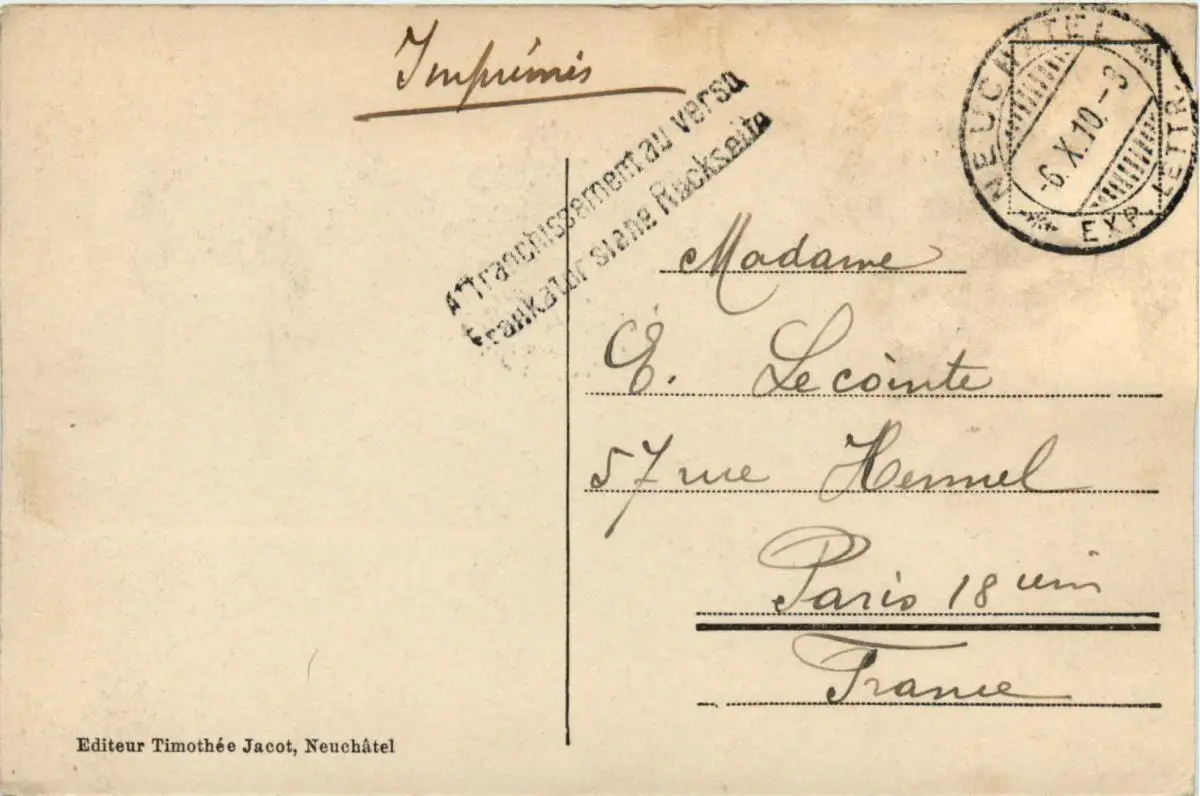 Imprimés
Affranchissement au verso
Frankatur siehe Rückseite
NEUCHÂTEL
-6.X.10.-3
EXP. LETTR.
Madame
E. Lecointe
57 rue Hermel
Paris 18 ieme
France
Editeur Timothée Jacot, Neuchâtel